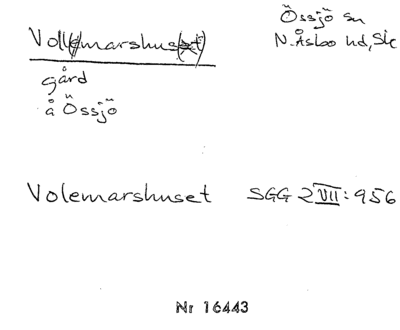 Össjö sn
Voll(e)marshus(et)
N. Åsbo hd, Sk
gård
å Össjö
Volemarshuset SGG 2 VII: 956
Nr 16443